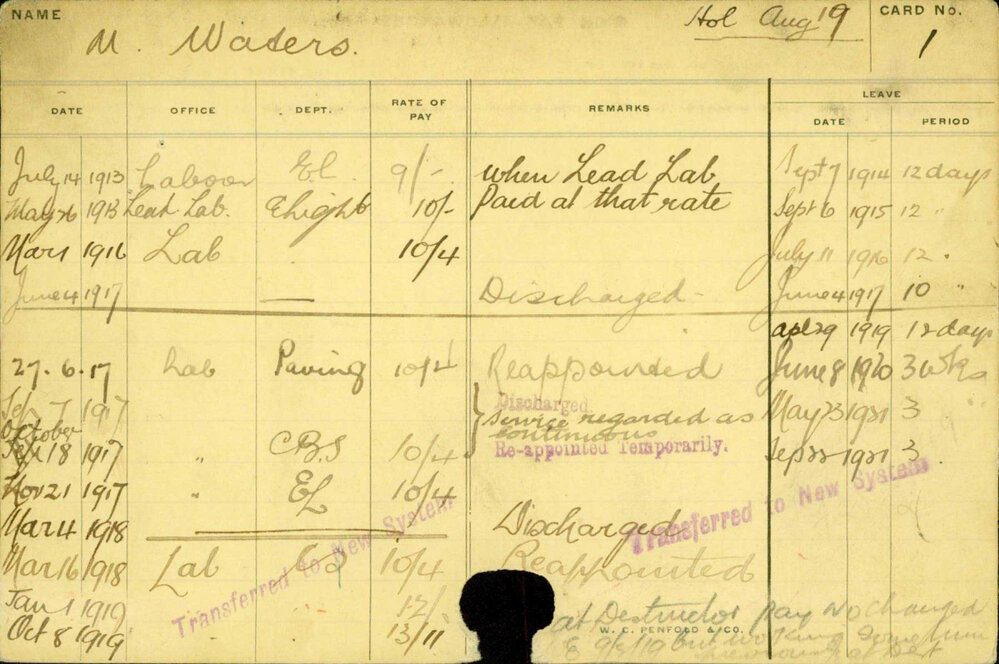 NAME M. Waters. Hol Aug 19 CARD No. 1
LEAVE
DATE OFFICE DEPT. RATE OF PAY REMARKS DATE PERIOD
July 14 1913 Labour EL. 9/- when Lead Lab Sept 7 1914 12 days
May 26 1913 Lead Lab. Elight 10/- Paid at that rate Sept 6 1915 12 "
Mar 1 1916 Lab 10/4 July 11 1916 12 "
June 4 1917 — Discharged - June 4 1917 10 "
Apl 29 1919 12 days
27.6.17 Lab Paving 10/4 Reappointed June 8 1920 3 wks
Sep 7 1917 Discharged May 23 1921 3
service regarded as continuous
October 18 1917 " C.B.S 10/4 Re-appointed Temporarily. Sep 22 1921 3
Nov 21 1917 " EL 10/4
Mar 4 1918 Discharged
Transferred to New System
Mar 16 1918 Lab 10/4 Reappointed
Transferred to New System
Jan 1 1919 12/
at Destructor pay No changed
Oct 8 1919 13/11
W. C. PENFOLD & CO.
E 9/8/19 but working